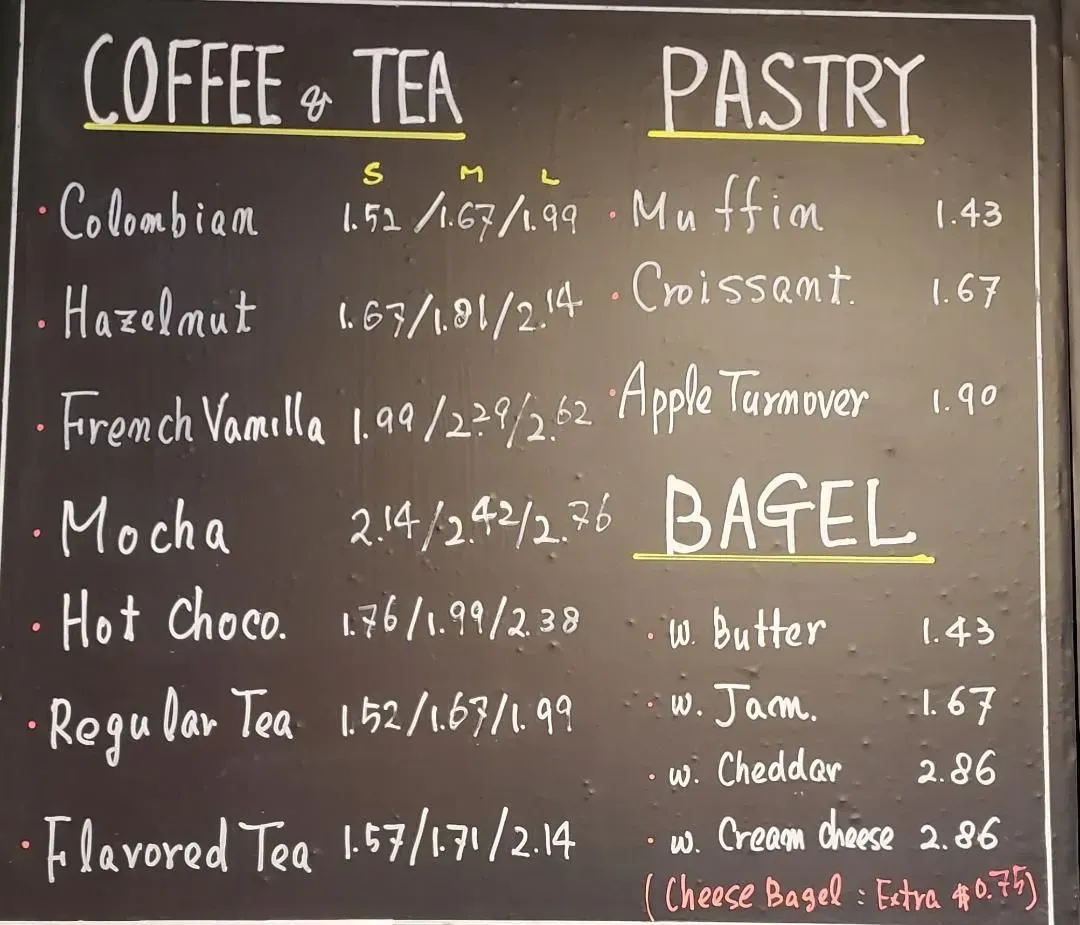 COFFEE & TEA
S M L
· Colombian 1.52/1.67/1.99
· Hazelnut 1.67/1.81/2.14
· French Vanilla 1.99/2.29/2.62
· Mocha 2.14/2.42/2.76
· Hot Choco. 1.76/1.99/2.38
· Regular Tea 1.52/1.67/1.99
· Flavored Tea 1.57/1.71/2.14
PASTRY
· Muffin 1.43
· Croissant. 1.67
· Apple Turnover 1.90
BAGEL
· w. Butter 1.43
· w. Jam. 1.67
· w. Cheddar 2.86
· w. Cream cheese 2.86
(Cheese Bagel : Extra $0.75)